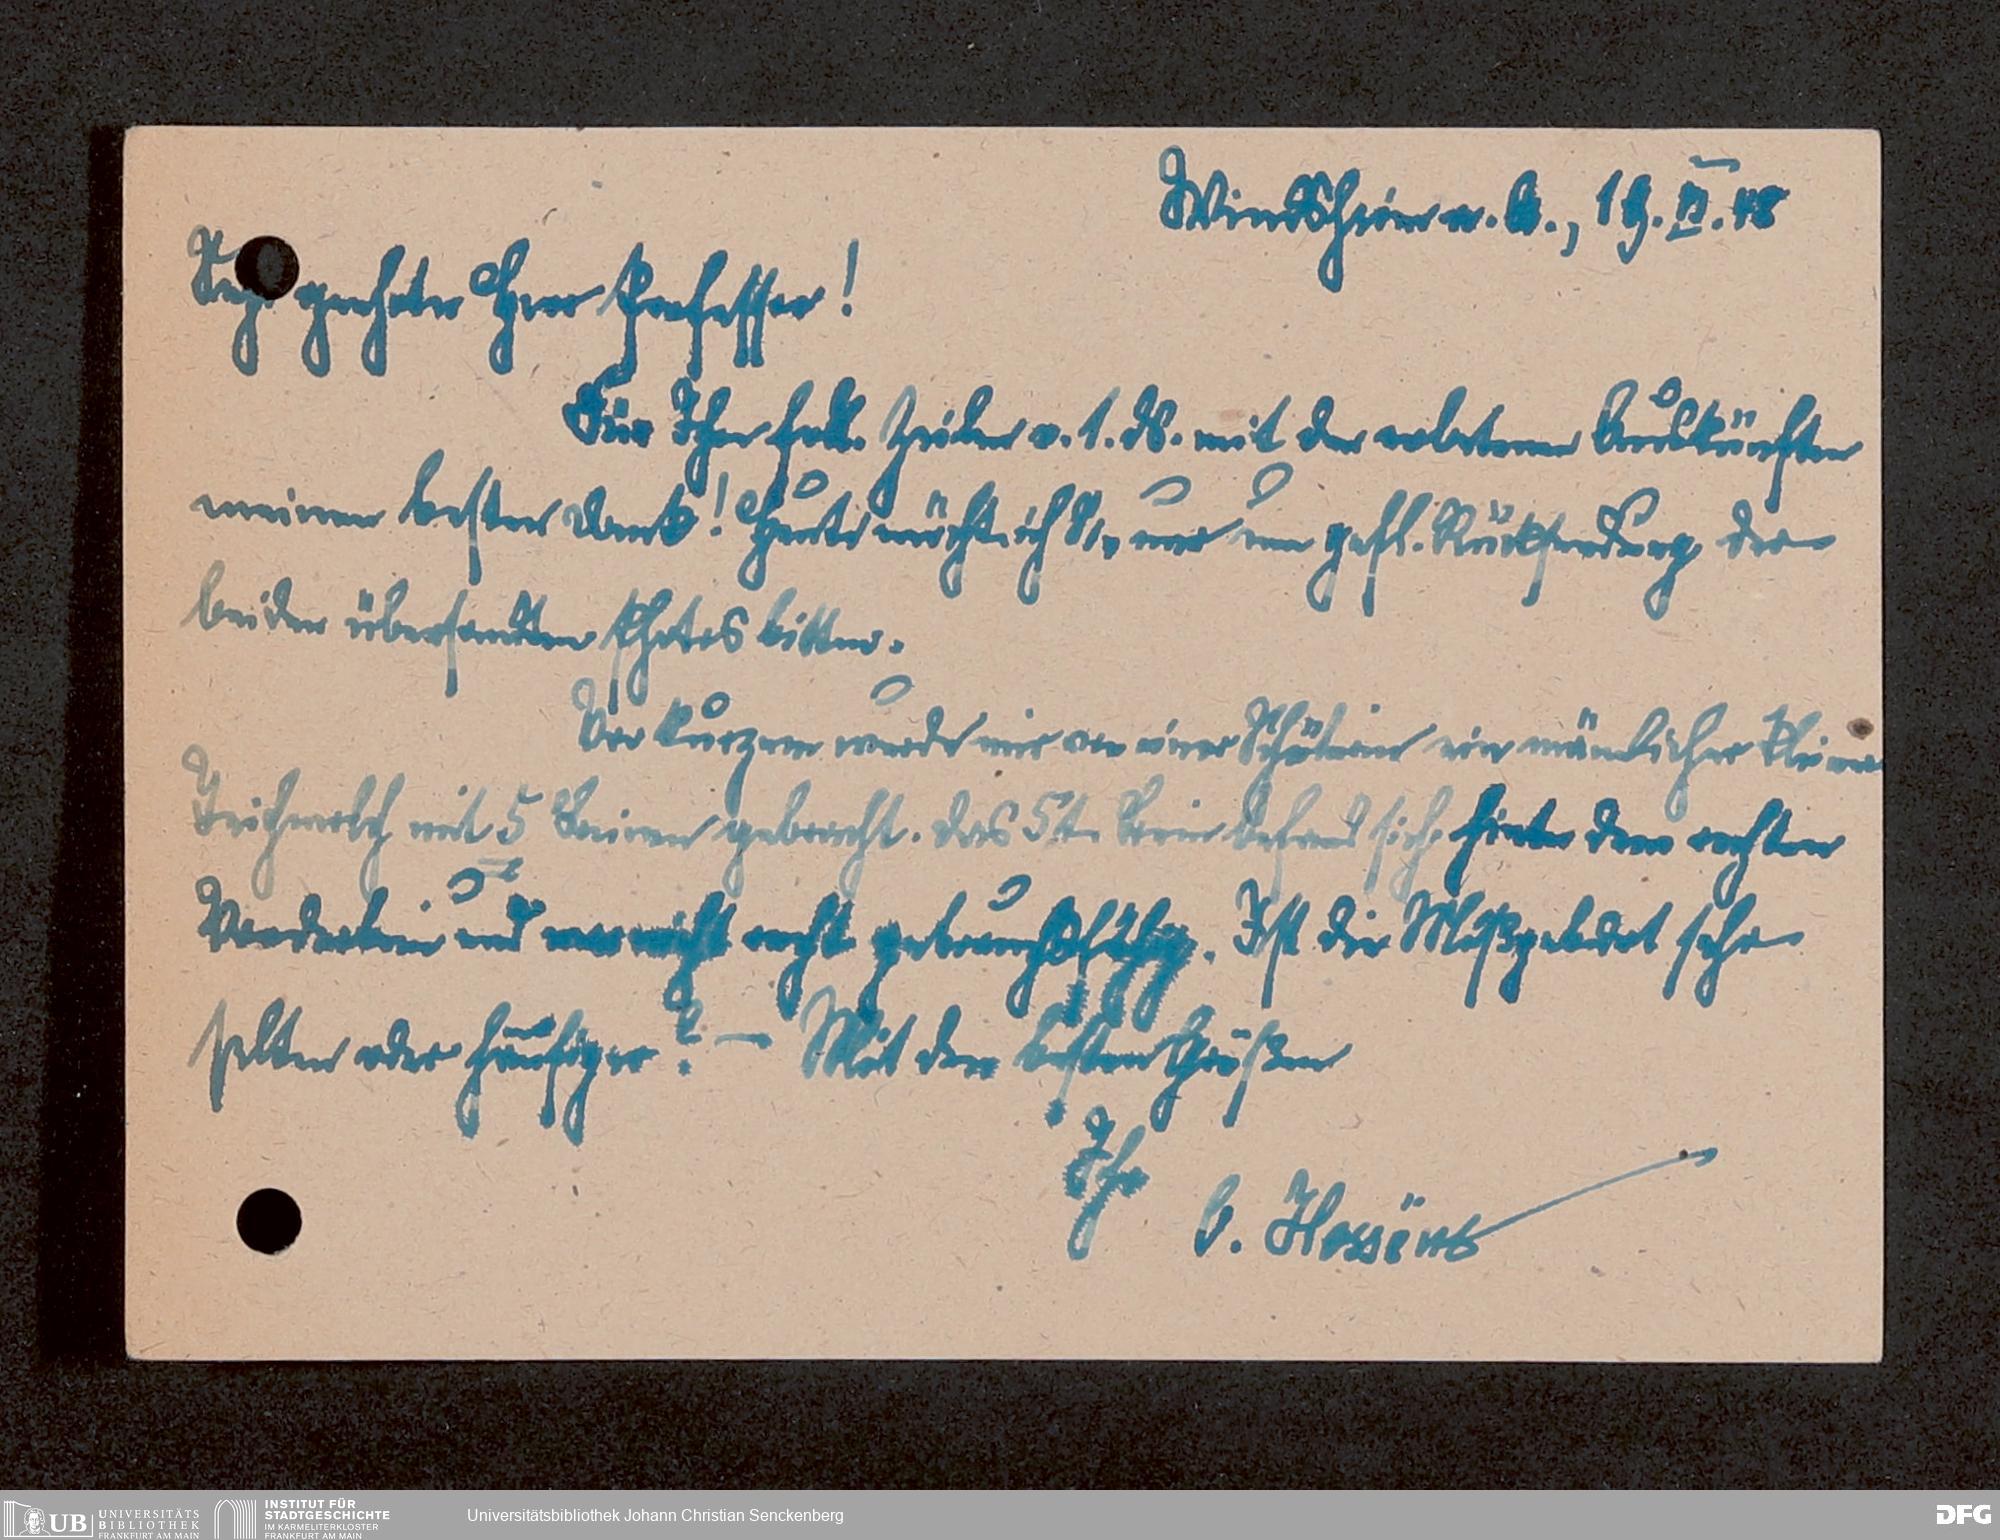 Windsheim a. A., 19. II. 48
Sehr geehrter Herr Professor!
Für Ihre frdl. Zeilen v. 1. ds. mit den erbetenen Auskünften
meinen besten Dank! Heute möchte ich Sie nur um gefl. Rücksendung der
beiden übersandten Photos bitten.
Vor kurzem wurde mir von einer Schülerin ein männlicher kleiner
Teichmolch mit 5 Beinen gebracht. Das 5te Bein befand sich hinter dem rechten
Vorderbein und war nicht recht gebrauchsfähig. Ist die Mißgeburt sehr
selten oder häufiger? — Mit den besten Grüßen
Ihr
UB UNIVERSITÄTS
BIBLIOTHEK
FRANKFURT AM MAIN
INSTITUT FÜR
STADTGESCHICHTE
IM KARMELITERKLOSTER
FRANKFURT AM MAIN
Universitätsbibliothek Johann Christian Senckenberg
DFG